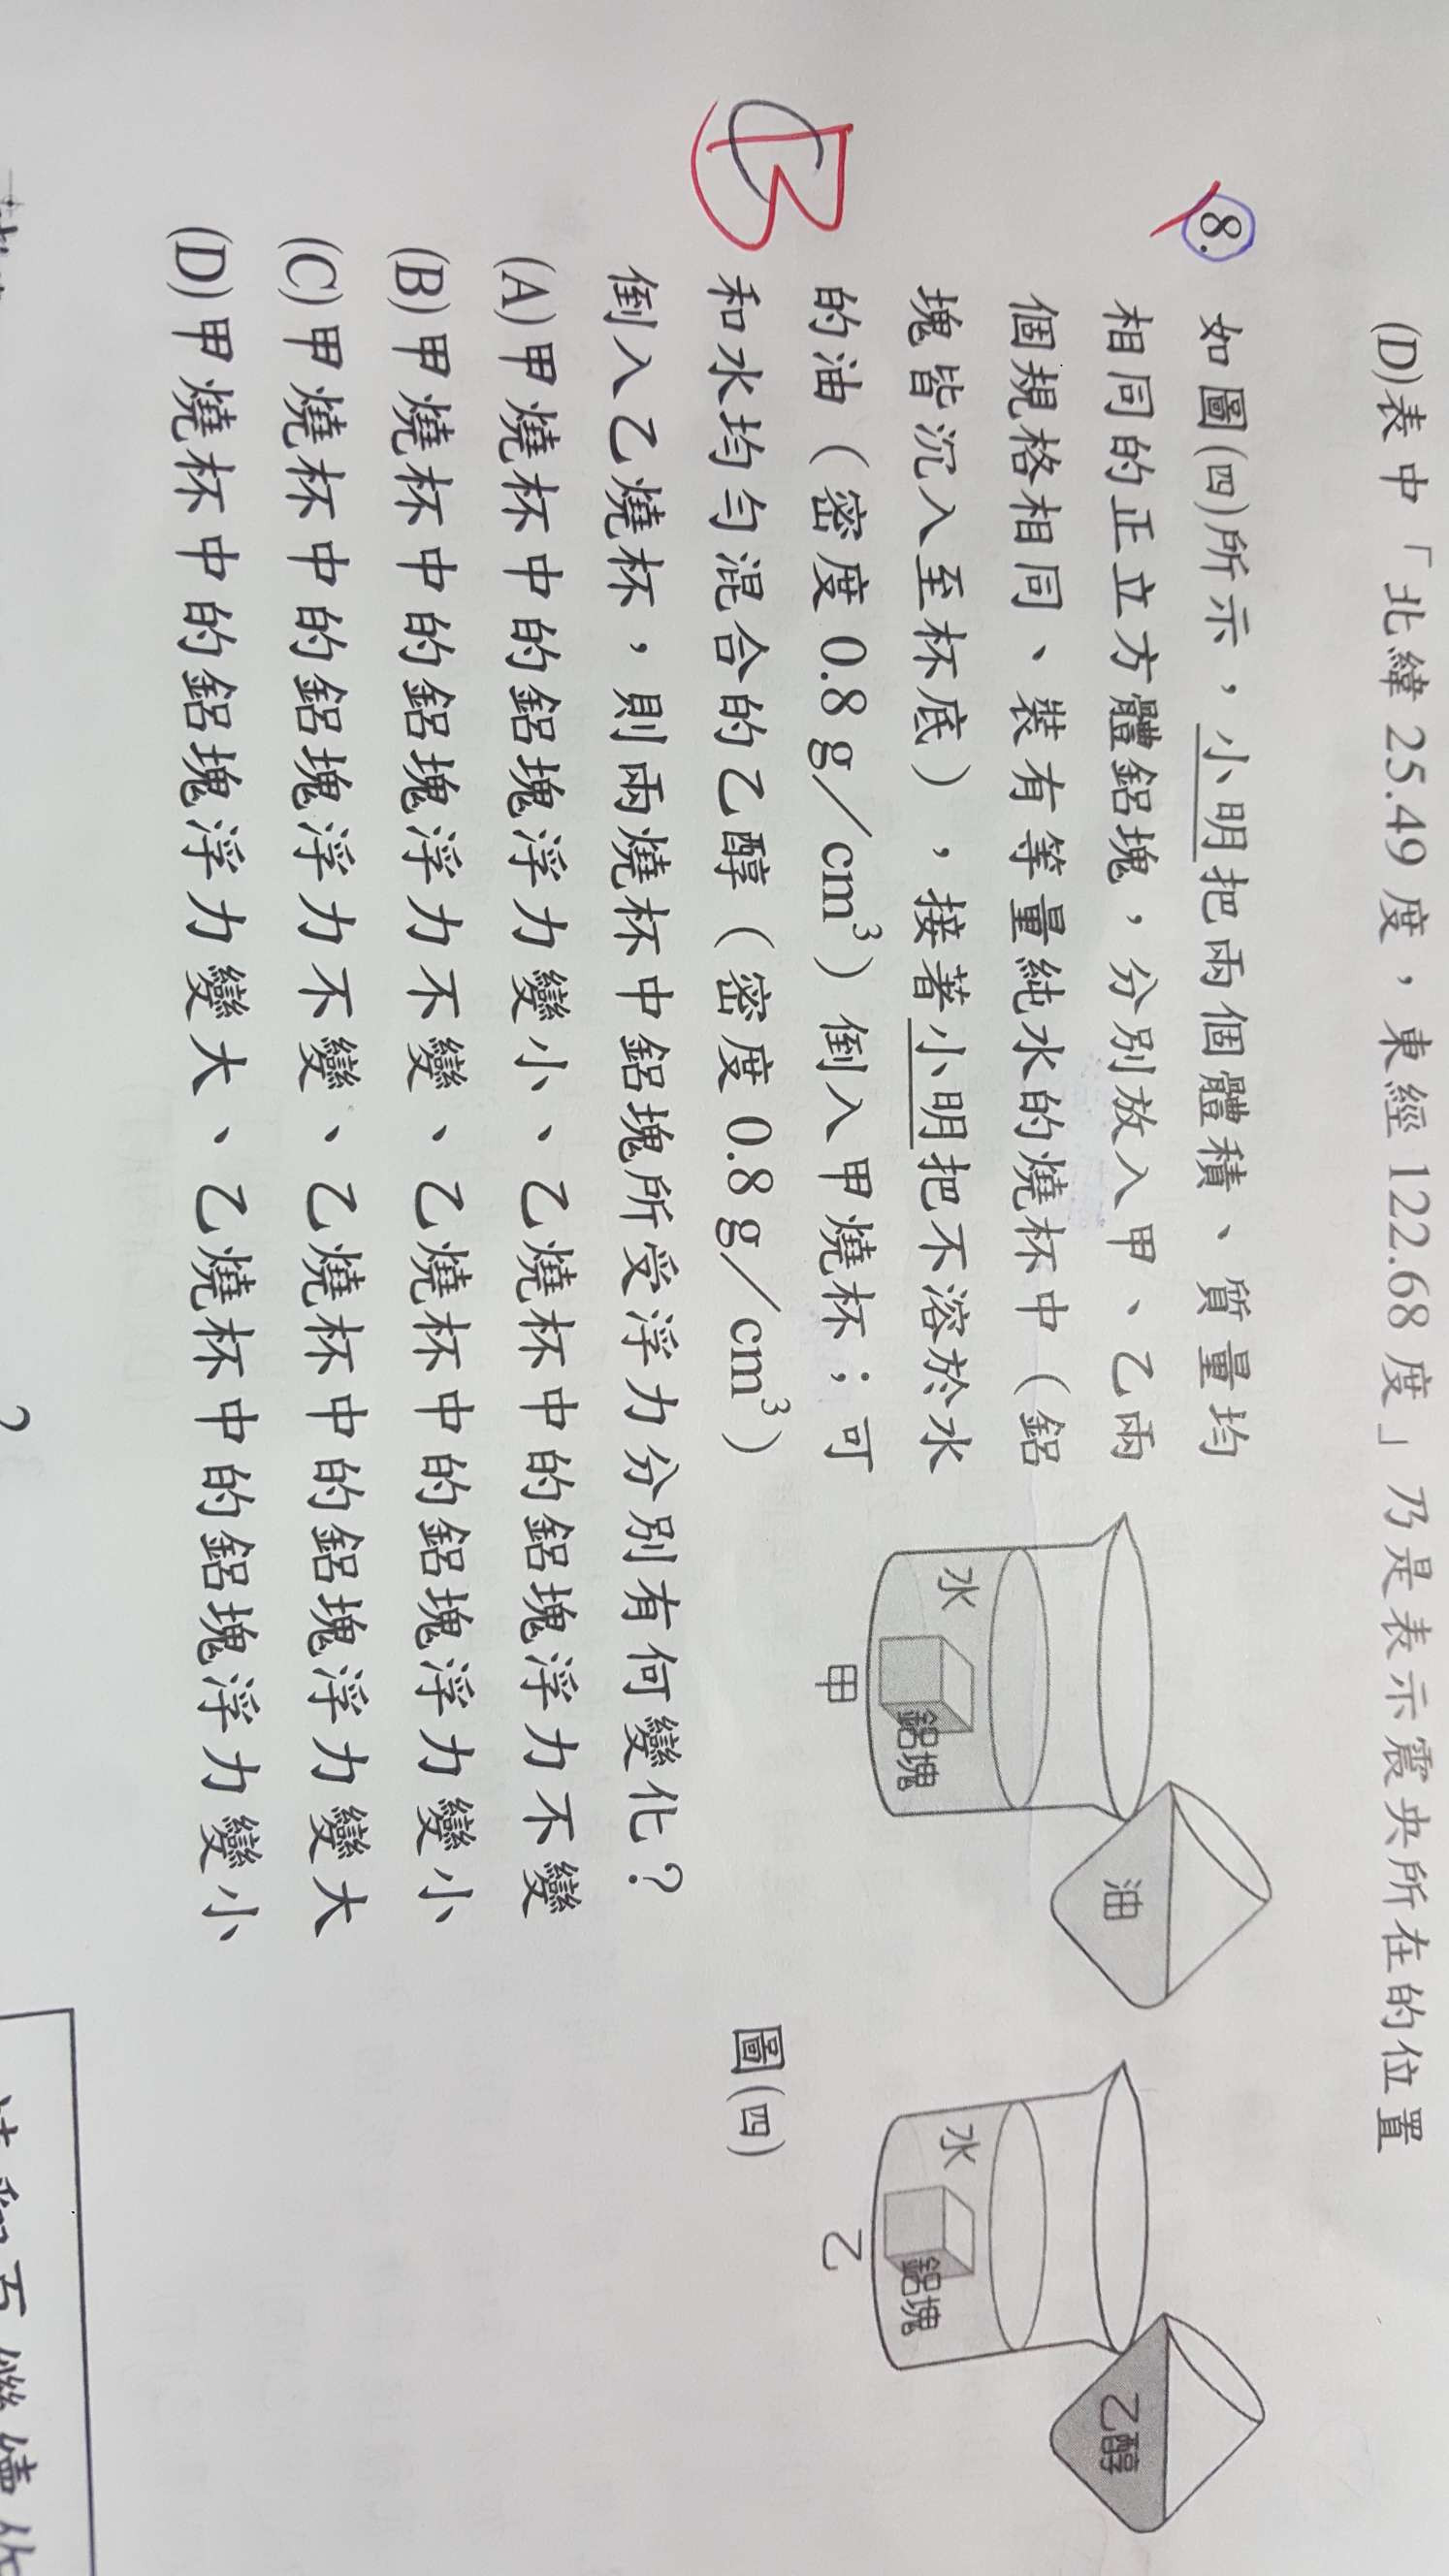 (D)表中「北緯 25.49 度,東經 122.68 度」乃是表示震央所在的位置
8. 如圖(四)所示,小明把兩個體積、質量均
相同的正立方體鋁塊,分別放入甲、乙兩
個規格相同、裝有等量純水的燒杯中(鋁
塊皆沉入至杯底),接著小明把不溶於水
的油(密度 0.8 g/cm³)倒入甲燒杯;可
和水均勻混合的乙醇(密度 0.8 g/cm³)
倒入乙燒杯,則兩燒杯中鋁塊所受浮力分別有何變化?
B
(A)甲燒杯中的鋁塊浮力變小、乙燒杯中的鋁塊浮力不變
(B)甲燒杯中的鋁塊浮力不變、乙燒杯中的鋁塊浮力變小
(C)甲燒杯中的鋁塊浮力不變、乙燒杯中的鋁塊浮力變大
(D)甲燒杯中的鋁塊浮力變大、乙燒杯中的鋁塊浮力變小
油
水
鋁塊
甲
乙醇
水
鋁塊
乙
圖(四)